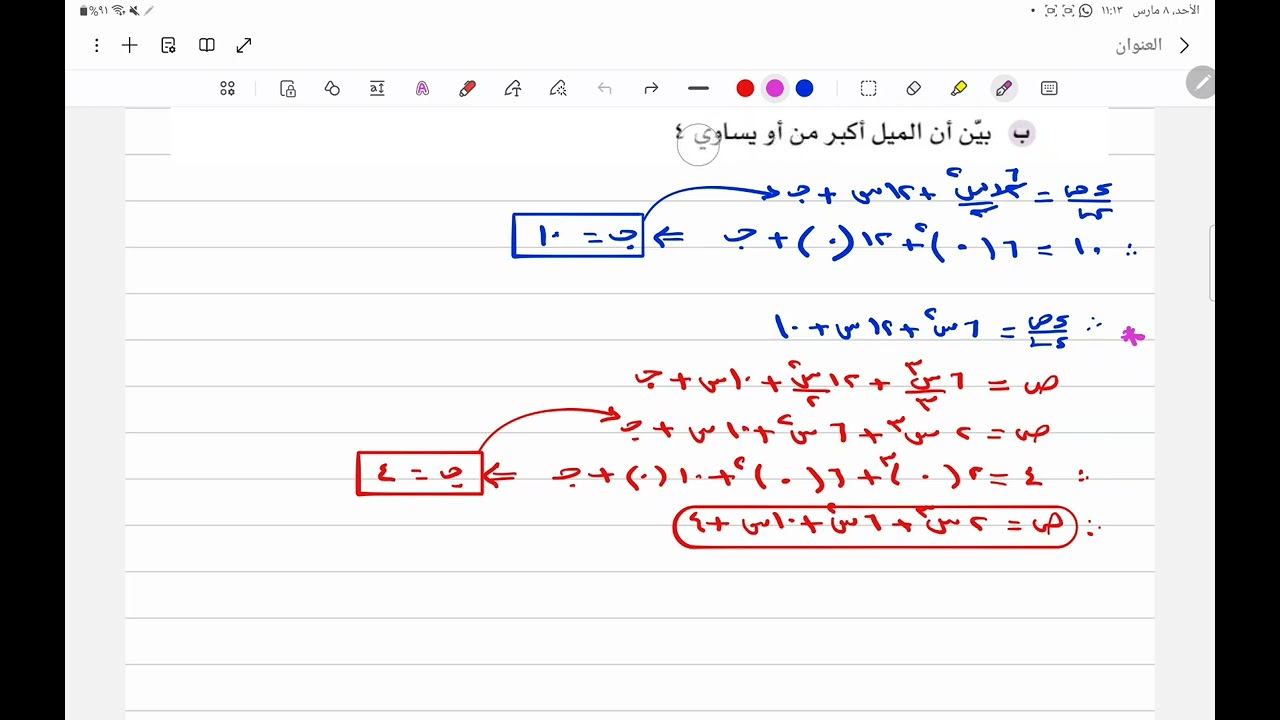 الأحد، ٨ مارس ١١:١٣
٩١%
العنوان
ب بيّن أن الميل أكبر من أو يساوي ٤
ءص/ءس = ١٢س^٢/٢ + ١٢س + جـ
∴ ١٠ = ٦(٠)^٢ + ١٢(٠) + جـ ⇐ جـ = ١٠
* ∴ ءص/ءس = ٦س^٢ + ١٢س + ١٠
ص = ٦س^٣/٣ + ١٢س^٢/٢ + ١٠س + جـ
ص = ٢س^٣ + ٦س^٢ + ١٠س + جـ
∴ ٤ = ٢(٠)^٣ + ٦(٠)^٢ + ١٠(٠) + جـ ⇐ جـ = ٤
∴ ص = ٢س^٣ + ٦س^٢ + ١٠س + ٤